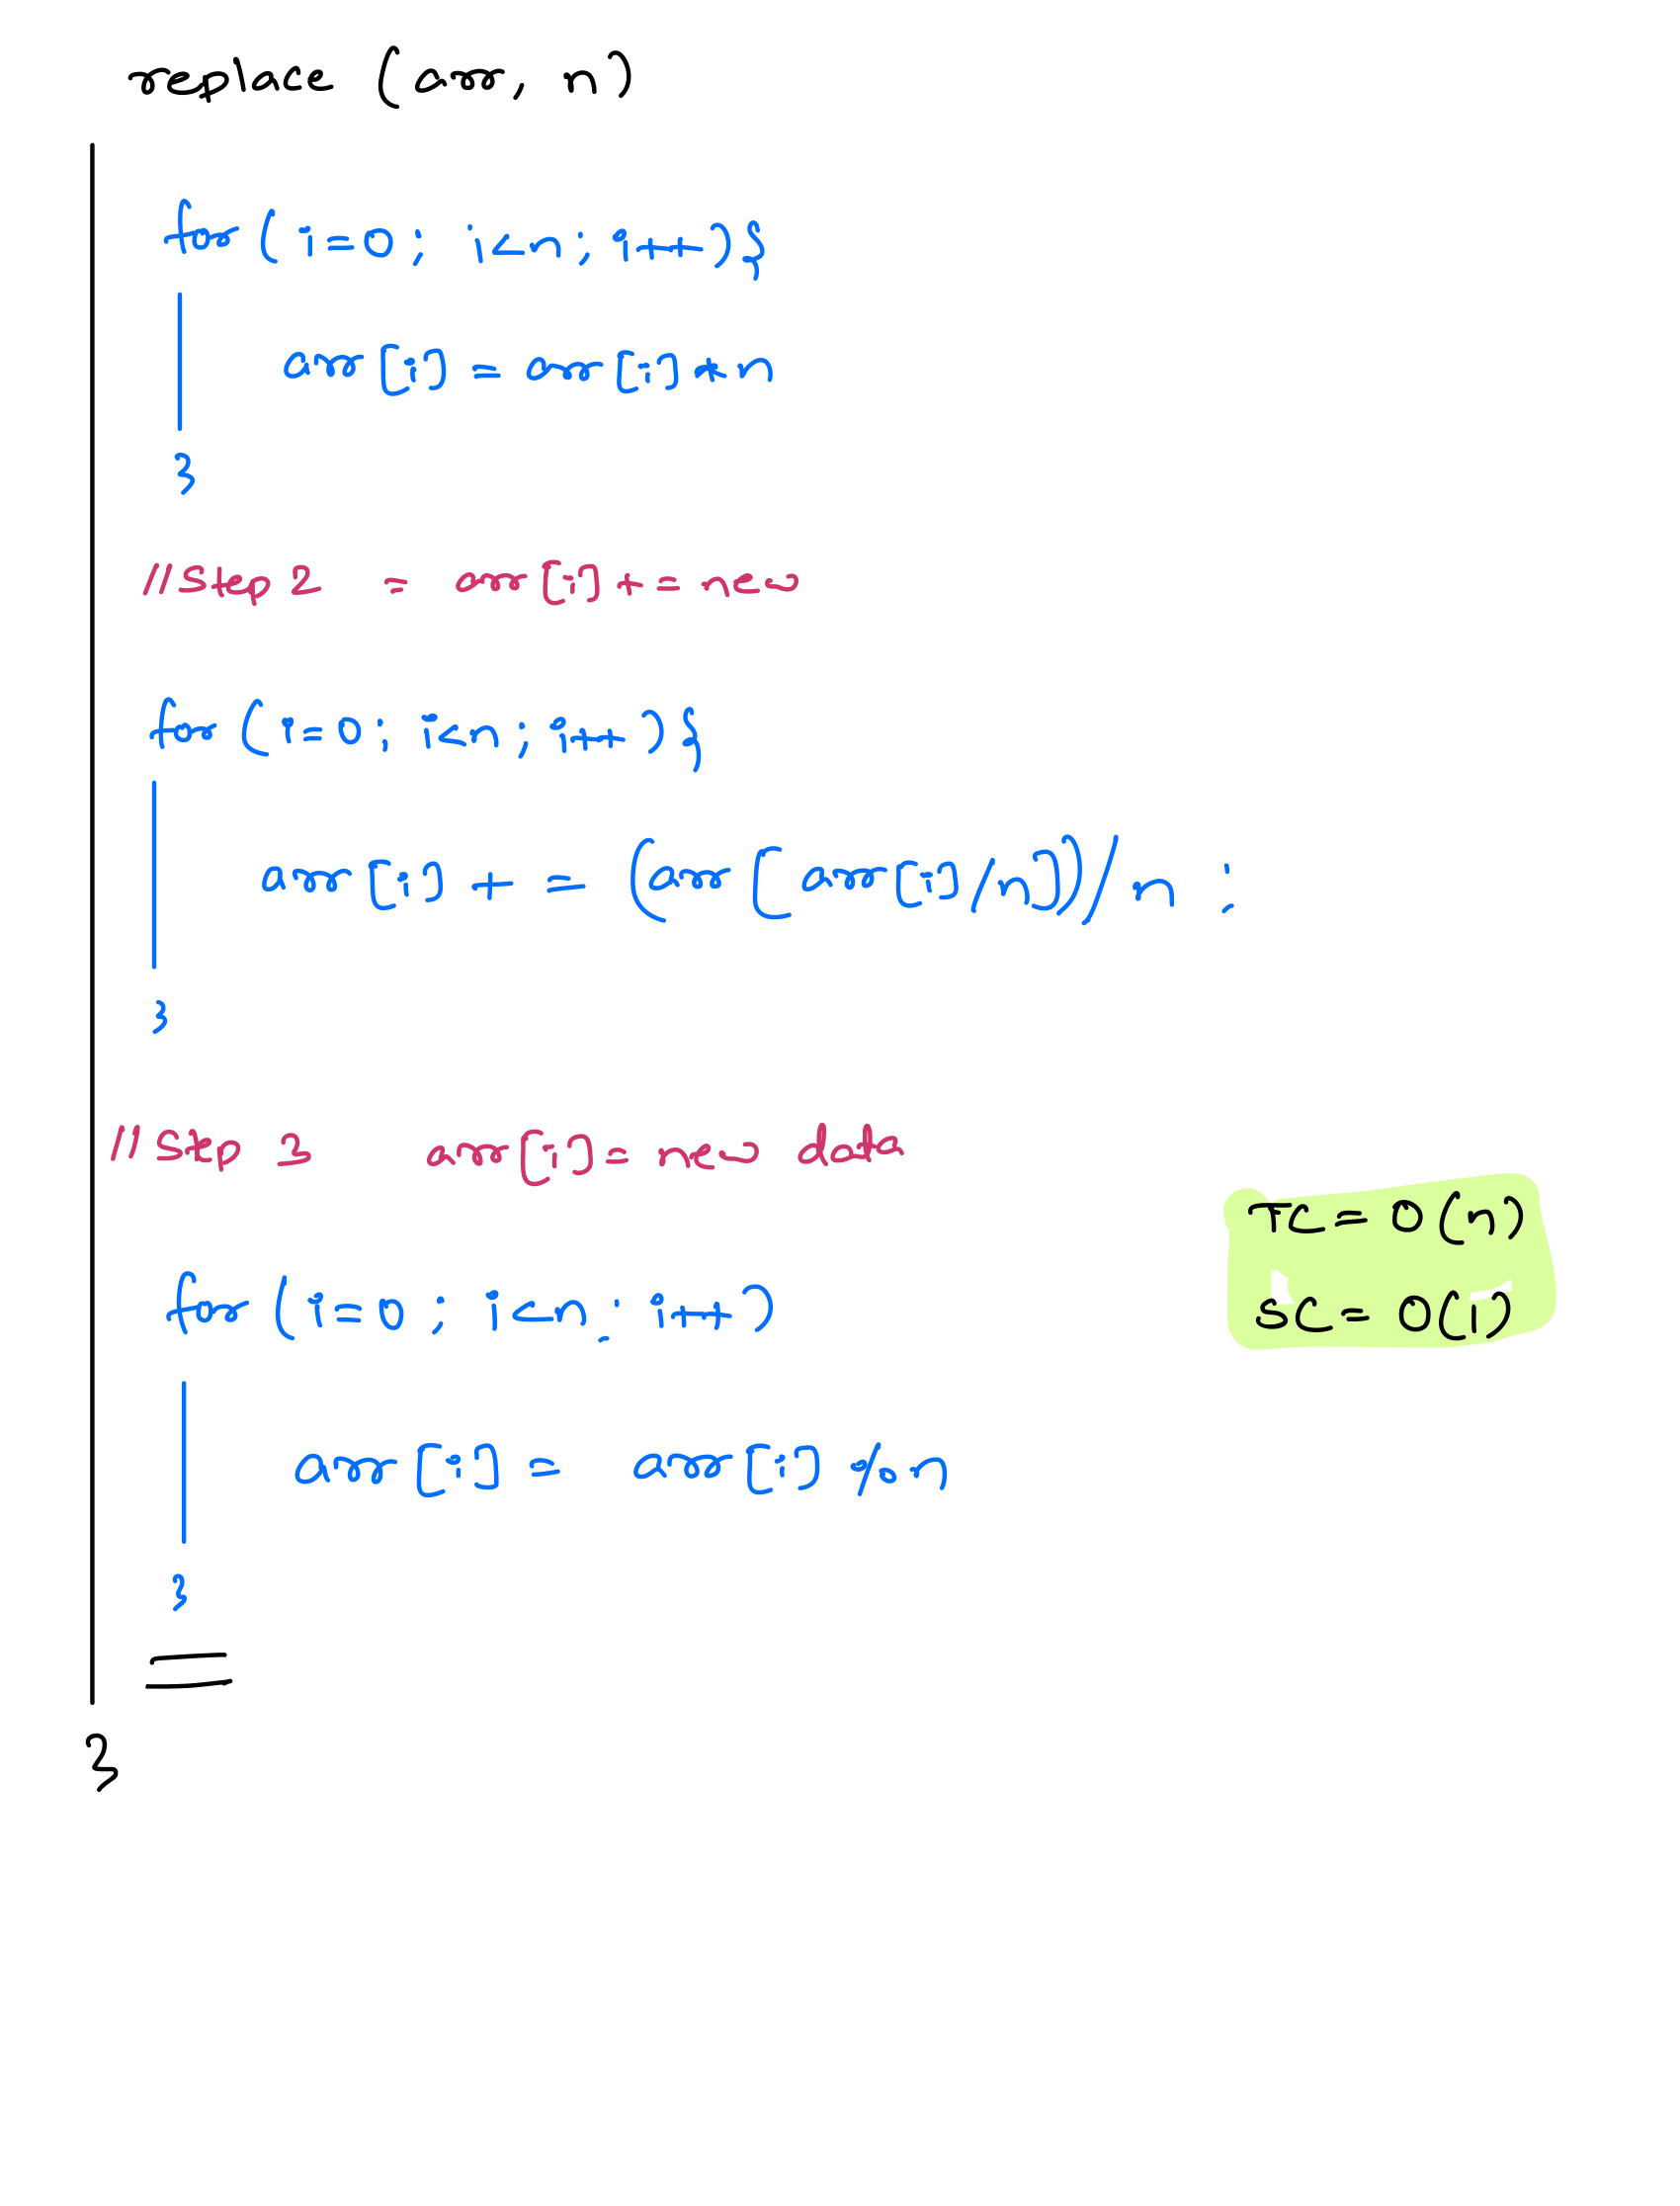 replace (arr, n)
for ( i=0 ; i<n ; i++ ) {
arr [i] = arr [i] * n
}
// Step 2 = arr [i] += new
for ( i=0 ; i<n ; i++ ) {
arr [i] + = (arr [ arr [i] / n ]) / n ;
}
// Step 3 arr [i] = new data
TC = O(n)
for ( i=0 ; i<n ; i++ )
SC = O(1)
arr [i] = arr [i] % n
}
}